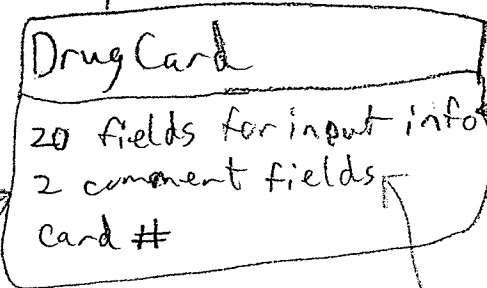 Drug Card
20 fields for input info
2 comment fields
card #